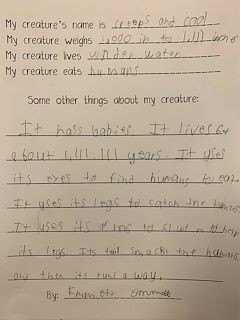 My creature's name is creeps and cool
My creature weighs 1,000 lb to 1,111
My creature lives under water
My creature eats humans
Some other things about my creature:
It hass babies. It lives for
about 1,111,111 years. It uses
its eyes to find humans to eat.
It uses its legs to catch the humans.
It uses its arms to to help
its legs. Its tail smacks the humans
and then its runs a way.
By: Emmett Emmett